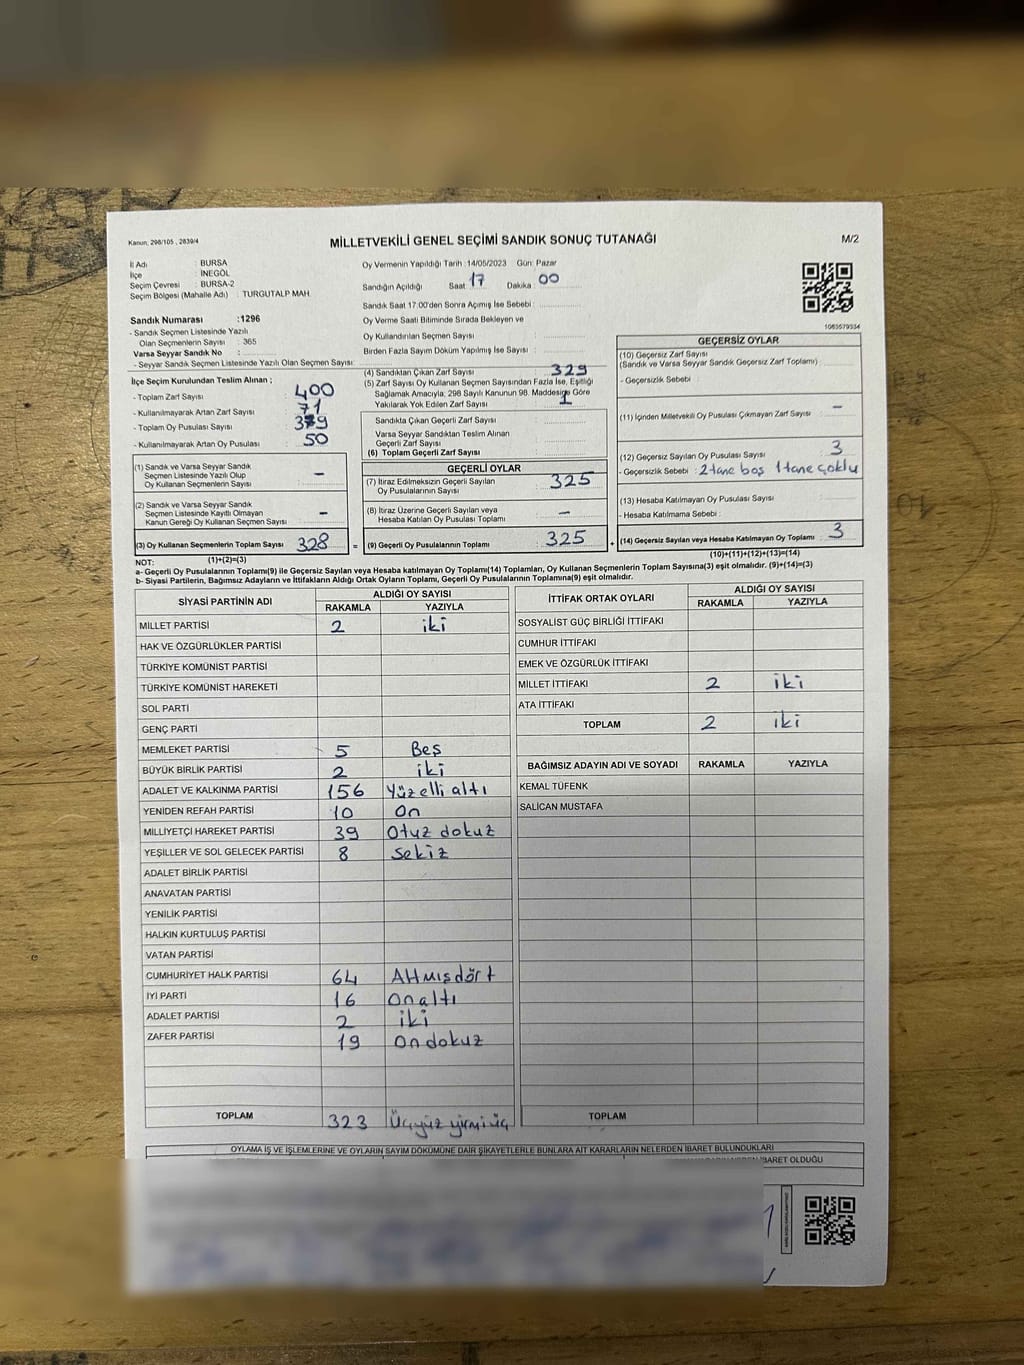 Kanun, 298/105 , 2839/4
MİLLETVEKİLİ GENEL SEÇİMİ SANDIK SONUÇ TUTANAĞI
M/2
İl Adı : BURSA
İlçe : İNEGÖL
Seçim Çevresi : BURSA-2
Seçim Bölgesi (Mahalle Adı) : TURGUTALP MAH.
Oy Vermenin Yapıldığı Tarih : 14/05/2023 Gün: Pazar
Sandığın Açıldığı Saat 17 Dakika 00
Sandık Saat 17:00'den Sonra Açımış İse Sebebi :
Oy Verme Saati Bitiminde Sırada Bekleyen ve
Oy Kullandırılan Seçmen Sayısı :
Birden Fazla Sayım Döküm Yapılmış İse Sayısı :
1063579334
Sandık Numarası :1296
- Sandık Seçmen Listesinde Yazılı
Olan Seçmenlerin Sayısı : 365
Varsa Seyyar Sandık No :
- Seyyar Sandık Seçmen Listesinde Yazılı Olan Seçmen Sayısı :
İlçe Seçim Kurulundan Teslim Alınan ;
- Toplam Zarf Sayısı : 400
- Kullanılmayarak Artan Zarf Sayısı : 71
- Toplam Oy Pusulası Sayısı :
- Kullanılmayarak Artan Oy Pusulası : 50
(1) Sandık ve Varsa Seyyar Sandık
Seçmen Listesinde Yazılı Olup
Oy Kullanan Seçmenlerin Sayısı : –
(2) Sandık ve Varsa Seyyar Sandık
Seçmen Listesinde Kayıtlı Olmayan
Kanun Gereği Oy Kullanan Seçmen Sayısı : –
(3) Oy Kullanan Seçmenlerin Toplam Sayısı : 328
(1)+(2)=(3)
(4) Sandıktan Çıkan Zarf Sayısı : 329
(5) Zarf Sayısı Oy Kullanan Seçmen Sayısından Fazla İse, Eşitliği
Sağlamak Amacıyla, 298 Sayılı Kanunun 98. Maddesine Göre
Yakılarak Yok Edilen Zarf Sayısı : 1
Sandıkta Çıkan Geçerli Zarf Sayısı :
Varsa Seyyar Sandıktan Teslim Alınan
Geçerli Zarf Sayısı :
(6) Toplam Geçerli Zarf Sayısı :
GEÇERLİ OYLAR
(7) İtiraz Edilmeksizin Geçerli Sayılan
Oy Pusulalarının Sayısı : 325
(8) İtiraz Üzerine Geçerli Sayılan veya
Hesaba Katılan Oy Pusulası Toplamı : –
= (9) Geçerli Oy Pusulalarının Toplamı : 325 +
GEÇERSİZ OYLAR
(10) Geçersiz Zarf Sayısı
(Sandık ve Varsa Seyyar Sandık Geçersiz Zarf Toplamı) :
- Geçersizlik Sebebi :
(11) İçinden Milletvekili Oy Pusulası Çıkmayan Zarf Sayısı : –
(12) Geçersiz Sayılan Oy Pusulası Sayısı : 3
- Geçersizlik Sebebi : 2 tane boş 1 tane çoklu
(13) Hesaba Katılmayan Oy Pusulası Sayısı :
- Hesaba Katılmama Sebebi :
(14) Geçersiz Sayılan veya Hesaba Katılmayan Oy Toplamı : 3
(10)+(11)+(12)+(13)=(14)
NOT:
a- Geçerli Oy Pusulalarının Toplamı(9) ile Geçersiz Sayılan veya Hesaba katılmayan Oy Toplamı(14) Toplamları, Oy Kullanan Seçmenlerin Toplam Sayısına(3) eşit olmalıdır. (9)+(14)=(3)
b- Siyasi Partilerin, Bağımsız Adayların ve İttifakların Aldığı Ortak Oyların Toplamı, Geçerli Oy Pusulalarının Toplamına(9) eşit olmalıdır.
SİYASİ PARTİNİN ADI ALDIĞI OY SAYISI
RAKAMLA YAZIYLA
MİLLET PARTİSİ 2 iki
HAK VE ÖZGÜRLÜKLER PARTİSİ
TÜRKİYE KOMÜNİST PARTİSİ
TÜRKİYE KOMÜNİST HAREKETİ
SOL PARTİ
GENÇ PARTİ
MEMLEKET PARTİSİ 5 Beş
BÜYÜK BİRLİK PARTİSİ 2 iki
ADALET VE KALKINMA PARTİSİ 156 Yüzelli altı
YENİDEN REFAH PARTİSİ 10 On
MİLLİYETÇİ HAREKET PARTİSİ 39 Otuz dokuz
YEŞİLLER VE SOL GELECEK PARTİSİ 8 Sekiz
ADALET BİRLİK PARTİSİ
ANAVATAN PARTİSİ
YENİLİK PARTİSİ
HALKIN KURTULUŞ PARTİSİ
VATAN PARTİSİ
CUMHURİYET HALK PARTİSİ 64 Altmışdört
İYİ PARTİ 16 onaltı
ADALET PARTİSİ 2 iki
ZAFER PARTİSİ 19 Ondokuz
TOPLAM 323 Üçyüz yirmi üç
İTTİFAK ORTAK OYLARI ALDIĞI OY SAYISI
RAKAMLA YAZIYLA
SOSYALİST GÜÇ BİRLİĞİ İTTİFAKI
CUMHUR İTTİFAKI
EMEK VE ÖZGÜRLÜK İTTİFAKI
MİLLET İTTİFAKI 2 iki
ATA İTTİFAKI
TOPLAM 2 iki
BAĞIMSIZ ADAYIN ADI VE SOYADI RAKAMLA YAZIYLA
KEMAL TÜFENK
SALİCAN MUSTAFA
TOPLAM
OYLAMA İŞ VE İŞLEMLERİNE VE OYLARIN SAYIM DÖKÜMÜNE DAİR ŞİKAYETLERLE BUNLARA AİT KARARLARIN NELERDEN İBARET BULUNDUKLARI
İBARET OLDUĞU